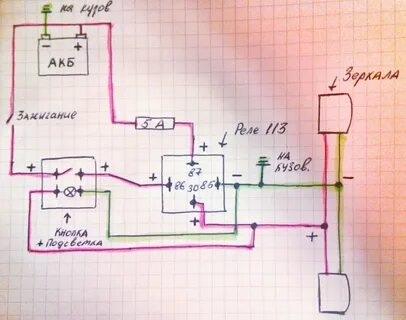 на кузов
- +
АКБ
Зеркала
Зажигание
5 А
Реле 113
+
87
86 30 85
+
+
-
на
кузов.
-
+
+
Кнопка
+ Подсветка